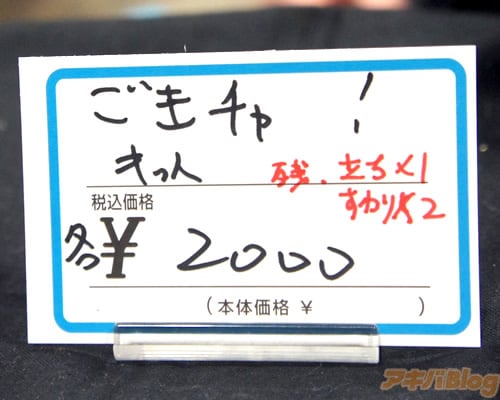 ごきチャ!
きっ人 残、立ち×1
すわり×2
税込価格
各¥2000
(本体価格 ¥ )
アキバBlog